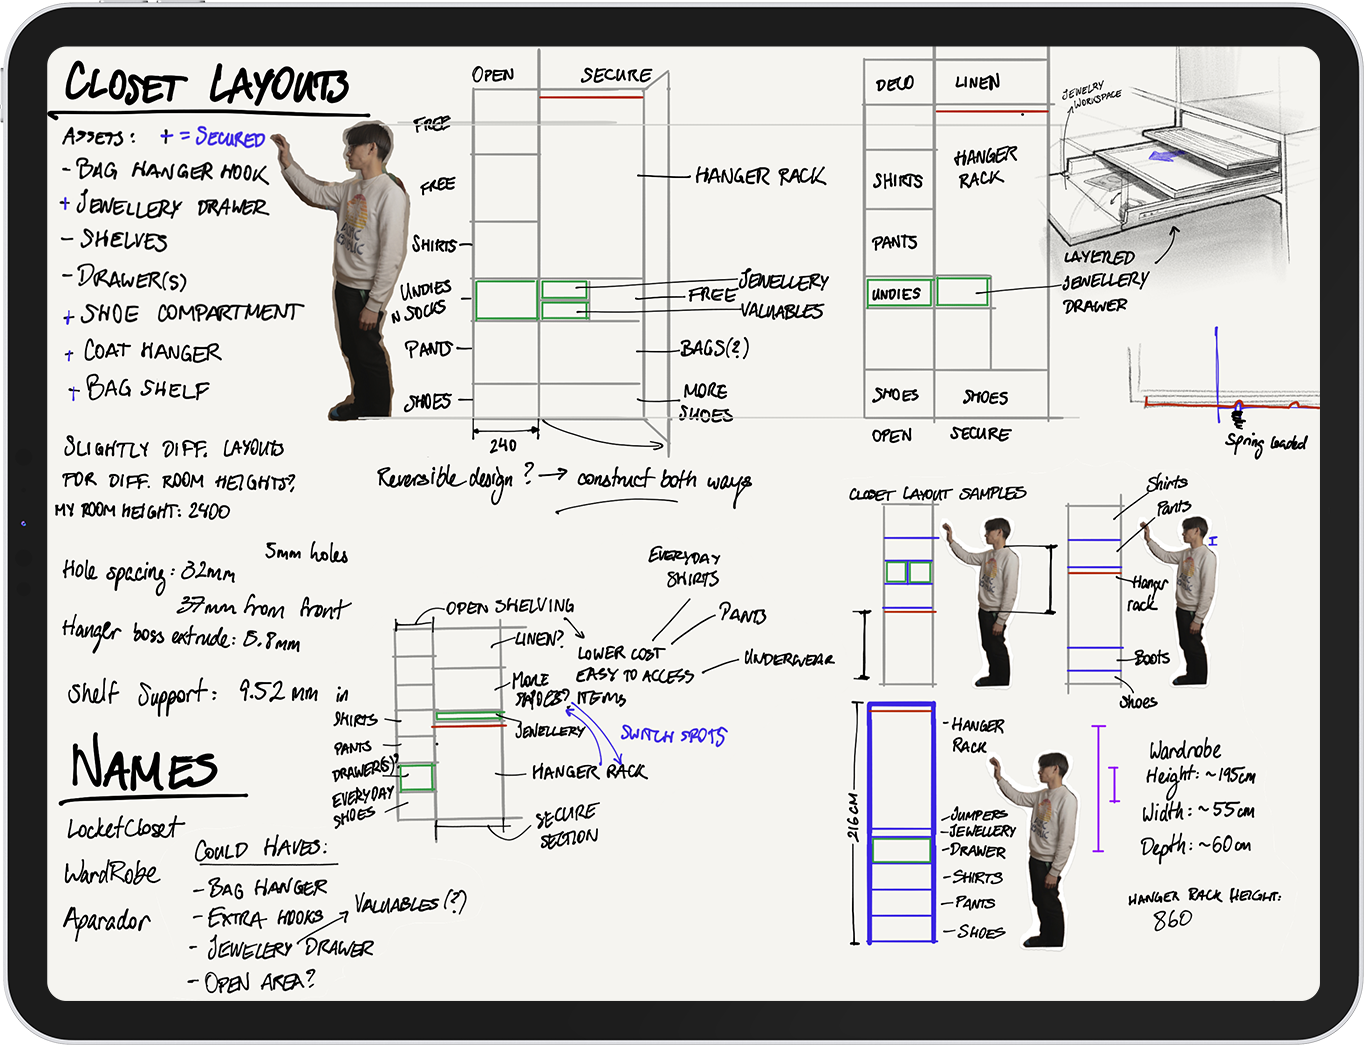 CLOSET LAYOUTS
ASSETS: + = SECURED
- BAG HANGER HOOK
+ JEWELLERY DRAWER
- SHELVES
- DRAWER(S)
+ SHOE COMPARTMENT
+ COAT HANGER
+ BAG SHELF
SLIGHTLY DIFF. LAYOUTS
FOR DIFF. ROOM HEIGHTS?
MY ROOM HEIGHT: 2400
5mm holes
Hole spacing: 32mm
37mm from front
Hanger boss extrude: 5.8mm
Shelf Support: 9.52 mm in
OPEN
SECURE
FREE
FREE
SHIRTS
UNDIES
N SOCKS
PANTS
SHOES
HANGER RACK
JEWELLERY
FREE
VALUABLES
BAGS(?)
MORE
SHOES
240
Reversible design? → construct both ways
DECO
LINEN
SHIRTS
HANGER
RACK
PANTS
UNDIES
SHOES
SHOES
OPEN
SECURE
JEWELRY
WORKSPACE
LAYERED
JEWELLERY
DRAWER
Spring loaded
CLOSET LAYOUT SAMPLES
Shirts
Pants
Hanger
rack
Boots
Shoes
OPEN SHELVING
LINEN?
MORE
JEWELLERY
HANGER RACK
SHIRTS
PANTS
DRAWER(S)?
EVERYDAY
SHOES
SECURE
SECTION
EVERYDAY
SHIRTS
PANTS
UNDERWEAR
LOWER COST
EASY TO ACCESS
ITEMS
SWITCH SPOTS
NAMES
LocketCloset
WardRobe
Aparador
COULD HAVES:
- BAG HANGER
- EXTRA HOOKS
- JEWELERY DRAWER
- OPEN AREA?
VALUABLES(?)
216CM
HANGER
RACK
JUMPERS
JEWELLERY
DRAWER
SHIRTS
PANTS
SHOES
Wardrobe
Height: ~195cm
Width: ~55cm
Depth: ~60cm
HANGER RACK HEIGHT:
860